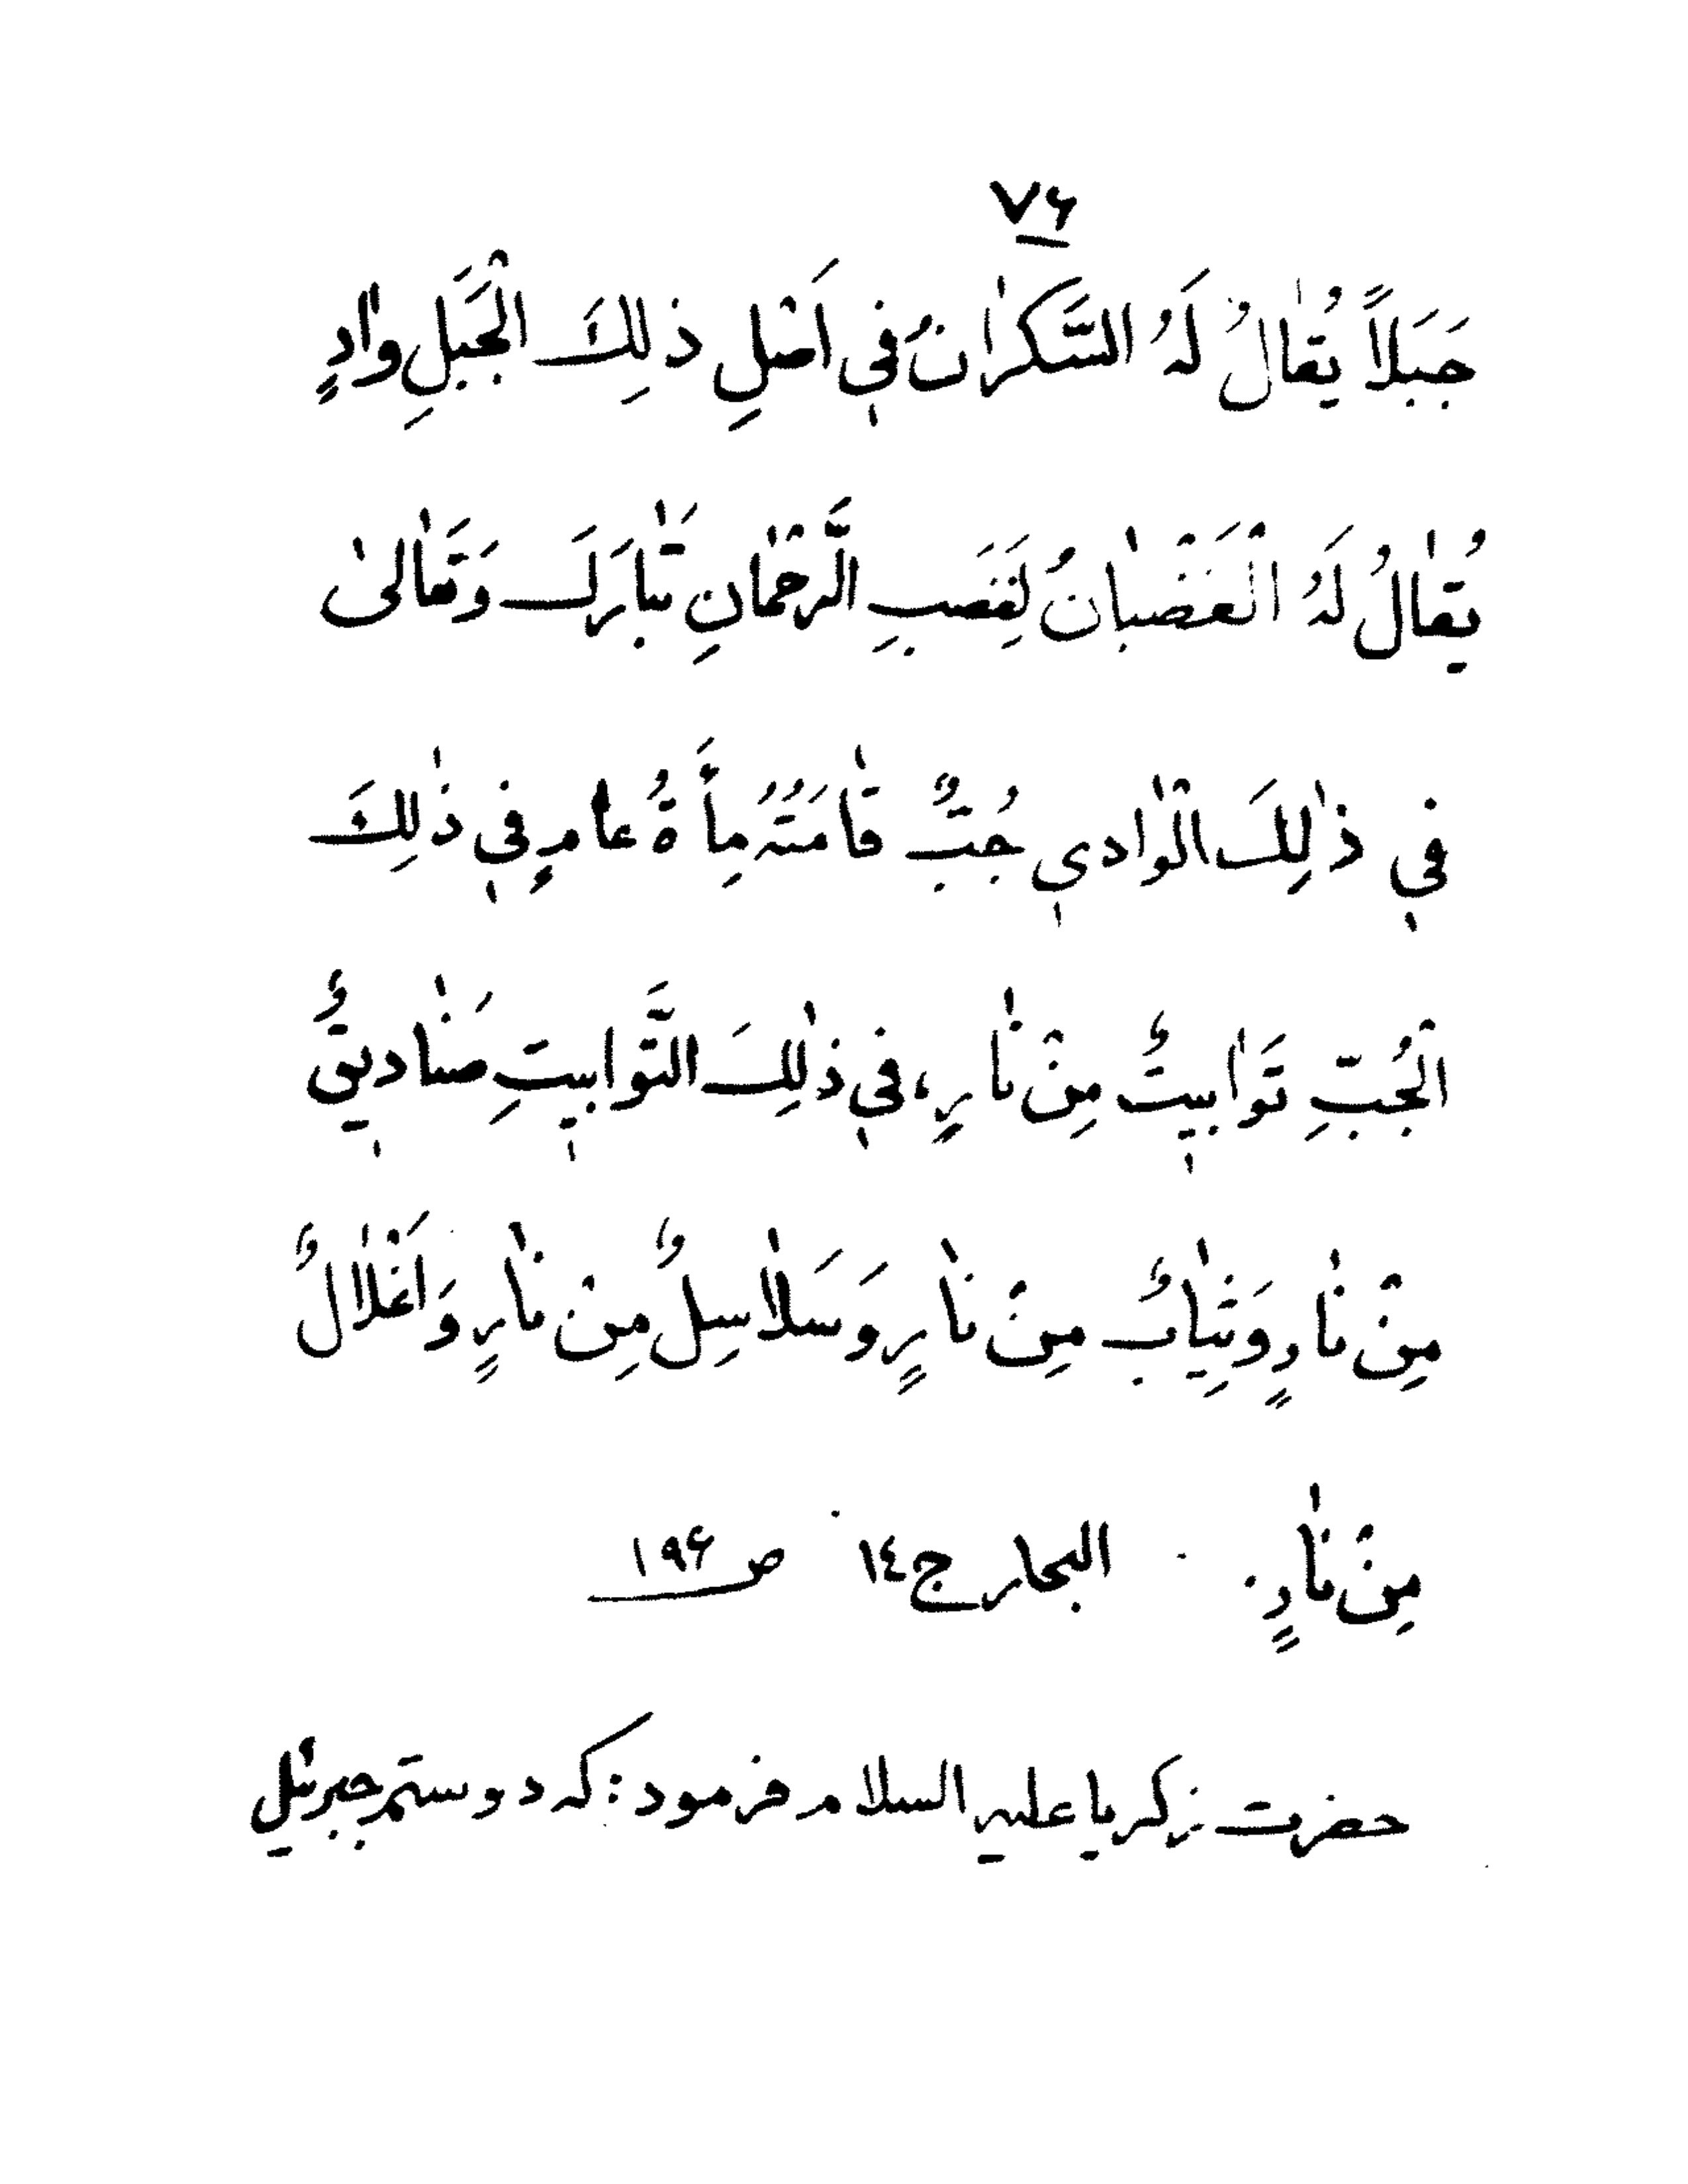 ۷۶
جَبَلاً يُقٰالُ لَهُ السَّكرٰانُ فِي اَصْلِ ذلِكَ الْجَبَلِ وٰادٍ
يُقٰالُ لَهُ الْغَضْبٰانُ لِغَضَبِ الرَّحْمٰانِ تَبٰارَكَ وَتَعٰالىٰ
فِي ذٰلِكَ الْوٰادي جُبٌّ قٰامَتُهُ مِأَةُ عٰامٍ فِي ذٰلِكَ
الْجُبِّ تَوٰابيتٌ مِنْ نٰارٍ، فِي ذٰلِكَ التَّوٰابيتِ صَنٰاديقٌ
مِنْ نٰارٍ وَثِيٰابٌ مِنْ نٰارٍ وَسَلاٰسِلٌ مِنْ نٰارٍ وَاَغْلاٰلٌ
مِنْ نٰارٍ. البحار ج١٤ ص ۱۹۶
حضرت زكريا عليه السلام فرمود: كه دوستم جبرئيل